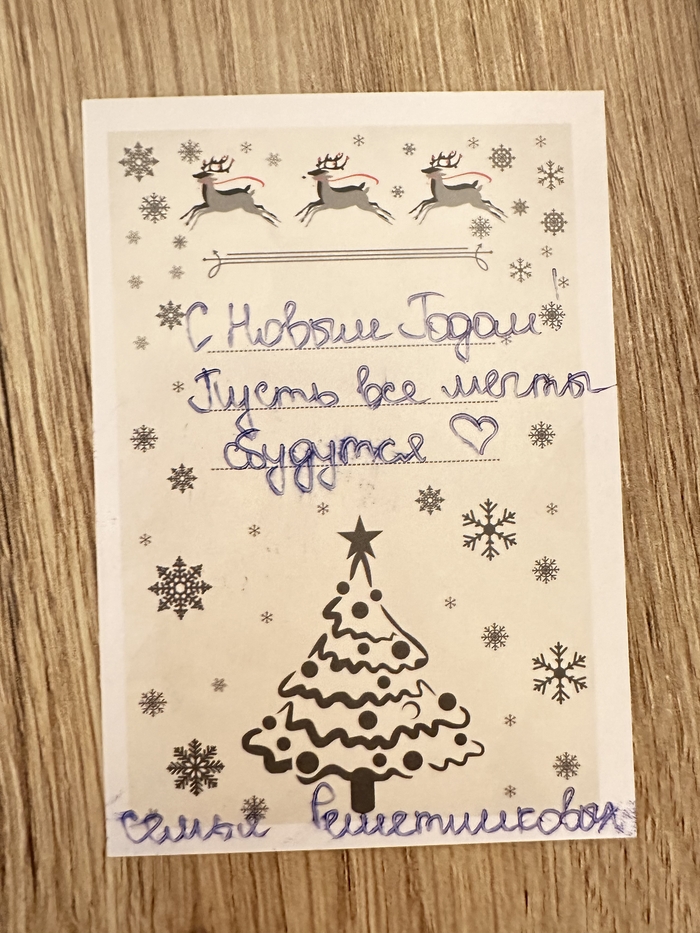 С Новым Годом!
Пусть все мечты
сбудутся ♡
семья Решетниковых